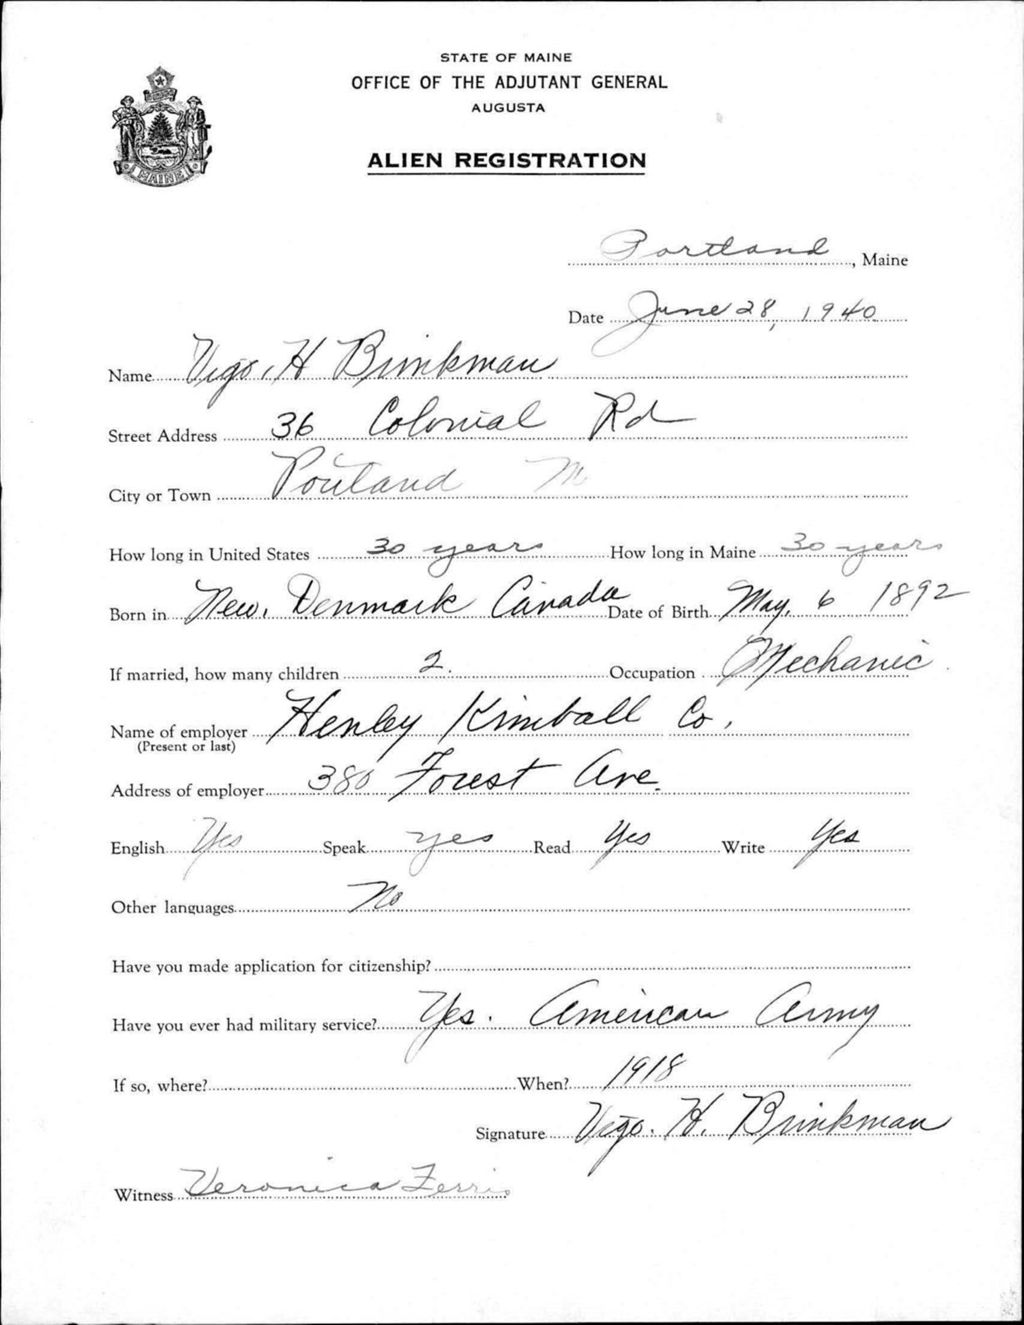 STATE OF MAINE
OFFICE OF THE ADJUTANT GENERAL
AUGUSTA
MAINE
ALIEN REGISTRATION
Portland, Maine
Date June 28, 1940
Name Vigo. H Brinkman
Street Address 36 Colonial Rd
City or Town Portland M
How long in United States 30 years How long in Maine 30 years
Born in New. Denmark Canada Date of Birth May. 6 1892
If married, how many children 2. Occupation Mechanic
Name of employer Henley Kimball Co.
(Present or last)
Address of employer 380 Forest Ave.
English Yes Speak yes Read Yes Write Yes
Other languages No
Have you made application for citizenship?
Have you ever had military service? Yes. American Army
If so, where? When? 1918
Signature Vigo. H. Brinkman
Witness Veronica Ferris